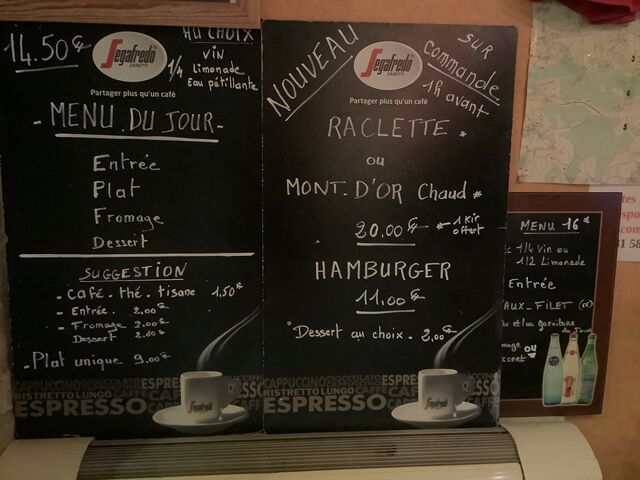 14.50€
Segafredo
ZANETTI
Partager plus qu'un café
AU CHOIX
VIN
1/4 Limonade
Eau pétillante
- MENU DU JOUR -
Entrée
Plat
Fromage
Dessert
SUGGESTION
- Café - thé - tisane 1,50€
- Entrée 2,00€
- Fromage 2,00€
Dessert 2.00€
- Plat unique 9,00€
CAPPUCCINO
RISTRETTO LUNGO
ESPRESSO
Segafredo
NOUVEAU
Segafredo
ZANETTI
Partager plus qu'un café
SUR
commande
1h avant
RACLETTE *
ou
MONT-D'OR Chaud *
20,00€ * 1 Kir
offert
HAMBURGER
11,00€
* Dessert au choix - 2,00€
CAPPUCCINO
RISTRETTO LUNGO
ESPRESSO
Segafredo
MENU 16€
1/4 Vin ou
1/2 Limonade
Entrée
AUX-FILET
et/ou garniture
du jour
ou